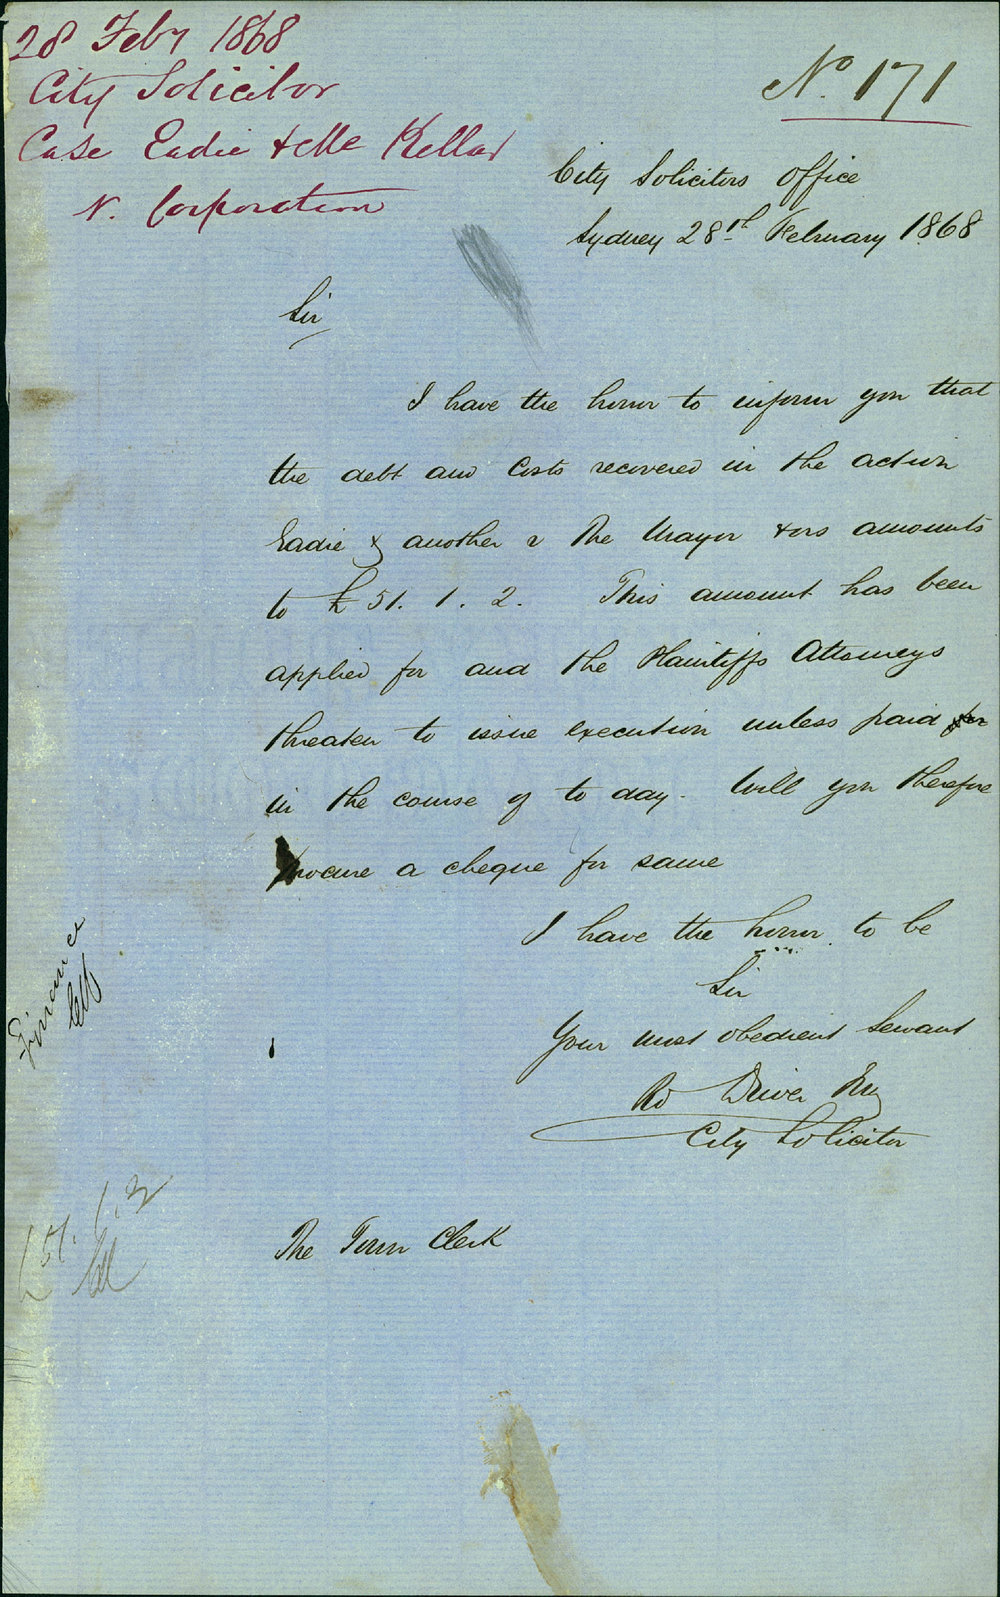 28 Feby 1868
City Solicitor
Case Eadie & Mc Kellar
v. Corporation
No. 171
City Solicitors Office
Sydney 28th February 1868
Sir
I have the honor to inform you that
the debt and Costs recovered in the action
Eadie & another v The Mayor & ors amounts
to £51. 1. 2. This amount has been
applied for and the Plaintiffs Attorneys
threaten to issue execution unless paid
in the course of to day. Will you therefore
procure a cheque for same
I have the honor to be
Sir
Your most obedient Servant
Rd Driver Jnr
City Solicitor
Finance
The Town Clerk
£51. 1. 2